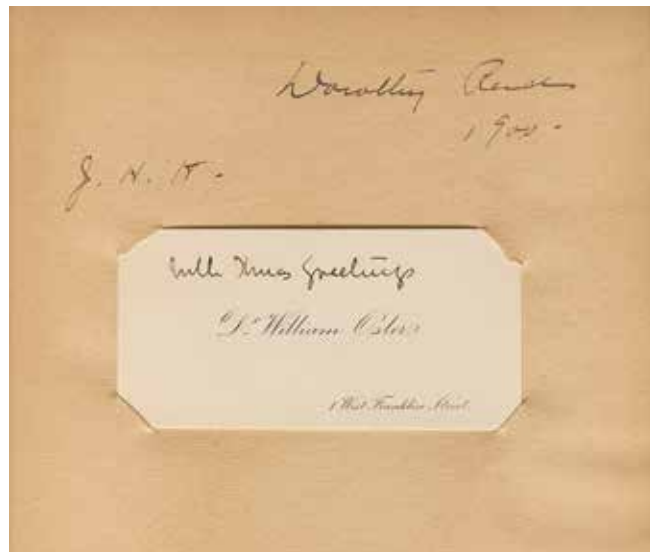 Dorothy Reed
1900.
J. H. H.
With Xmas Greetings
Dr. William Osler.
1 West Franklin Street.